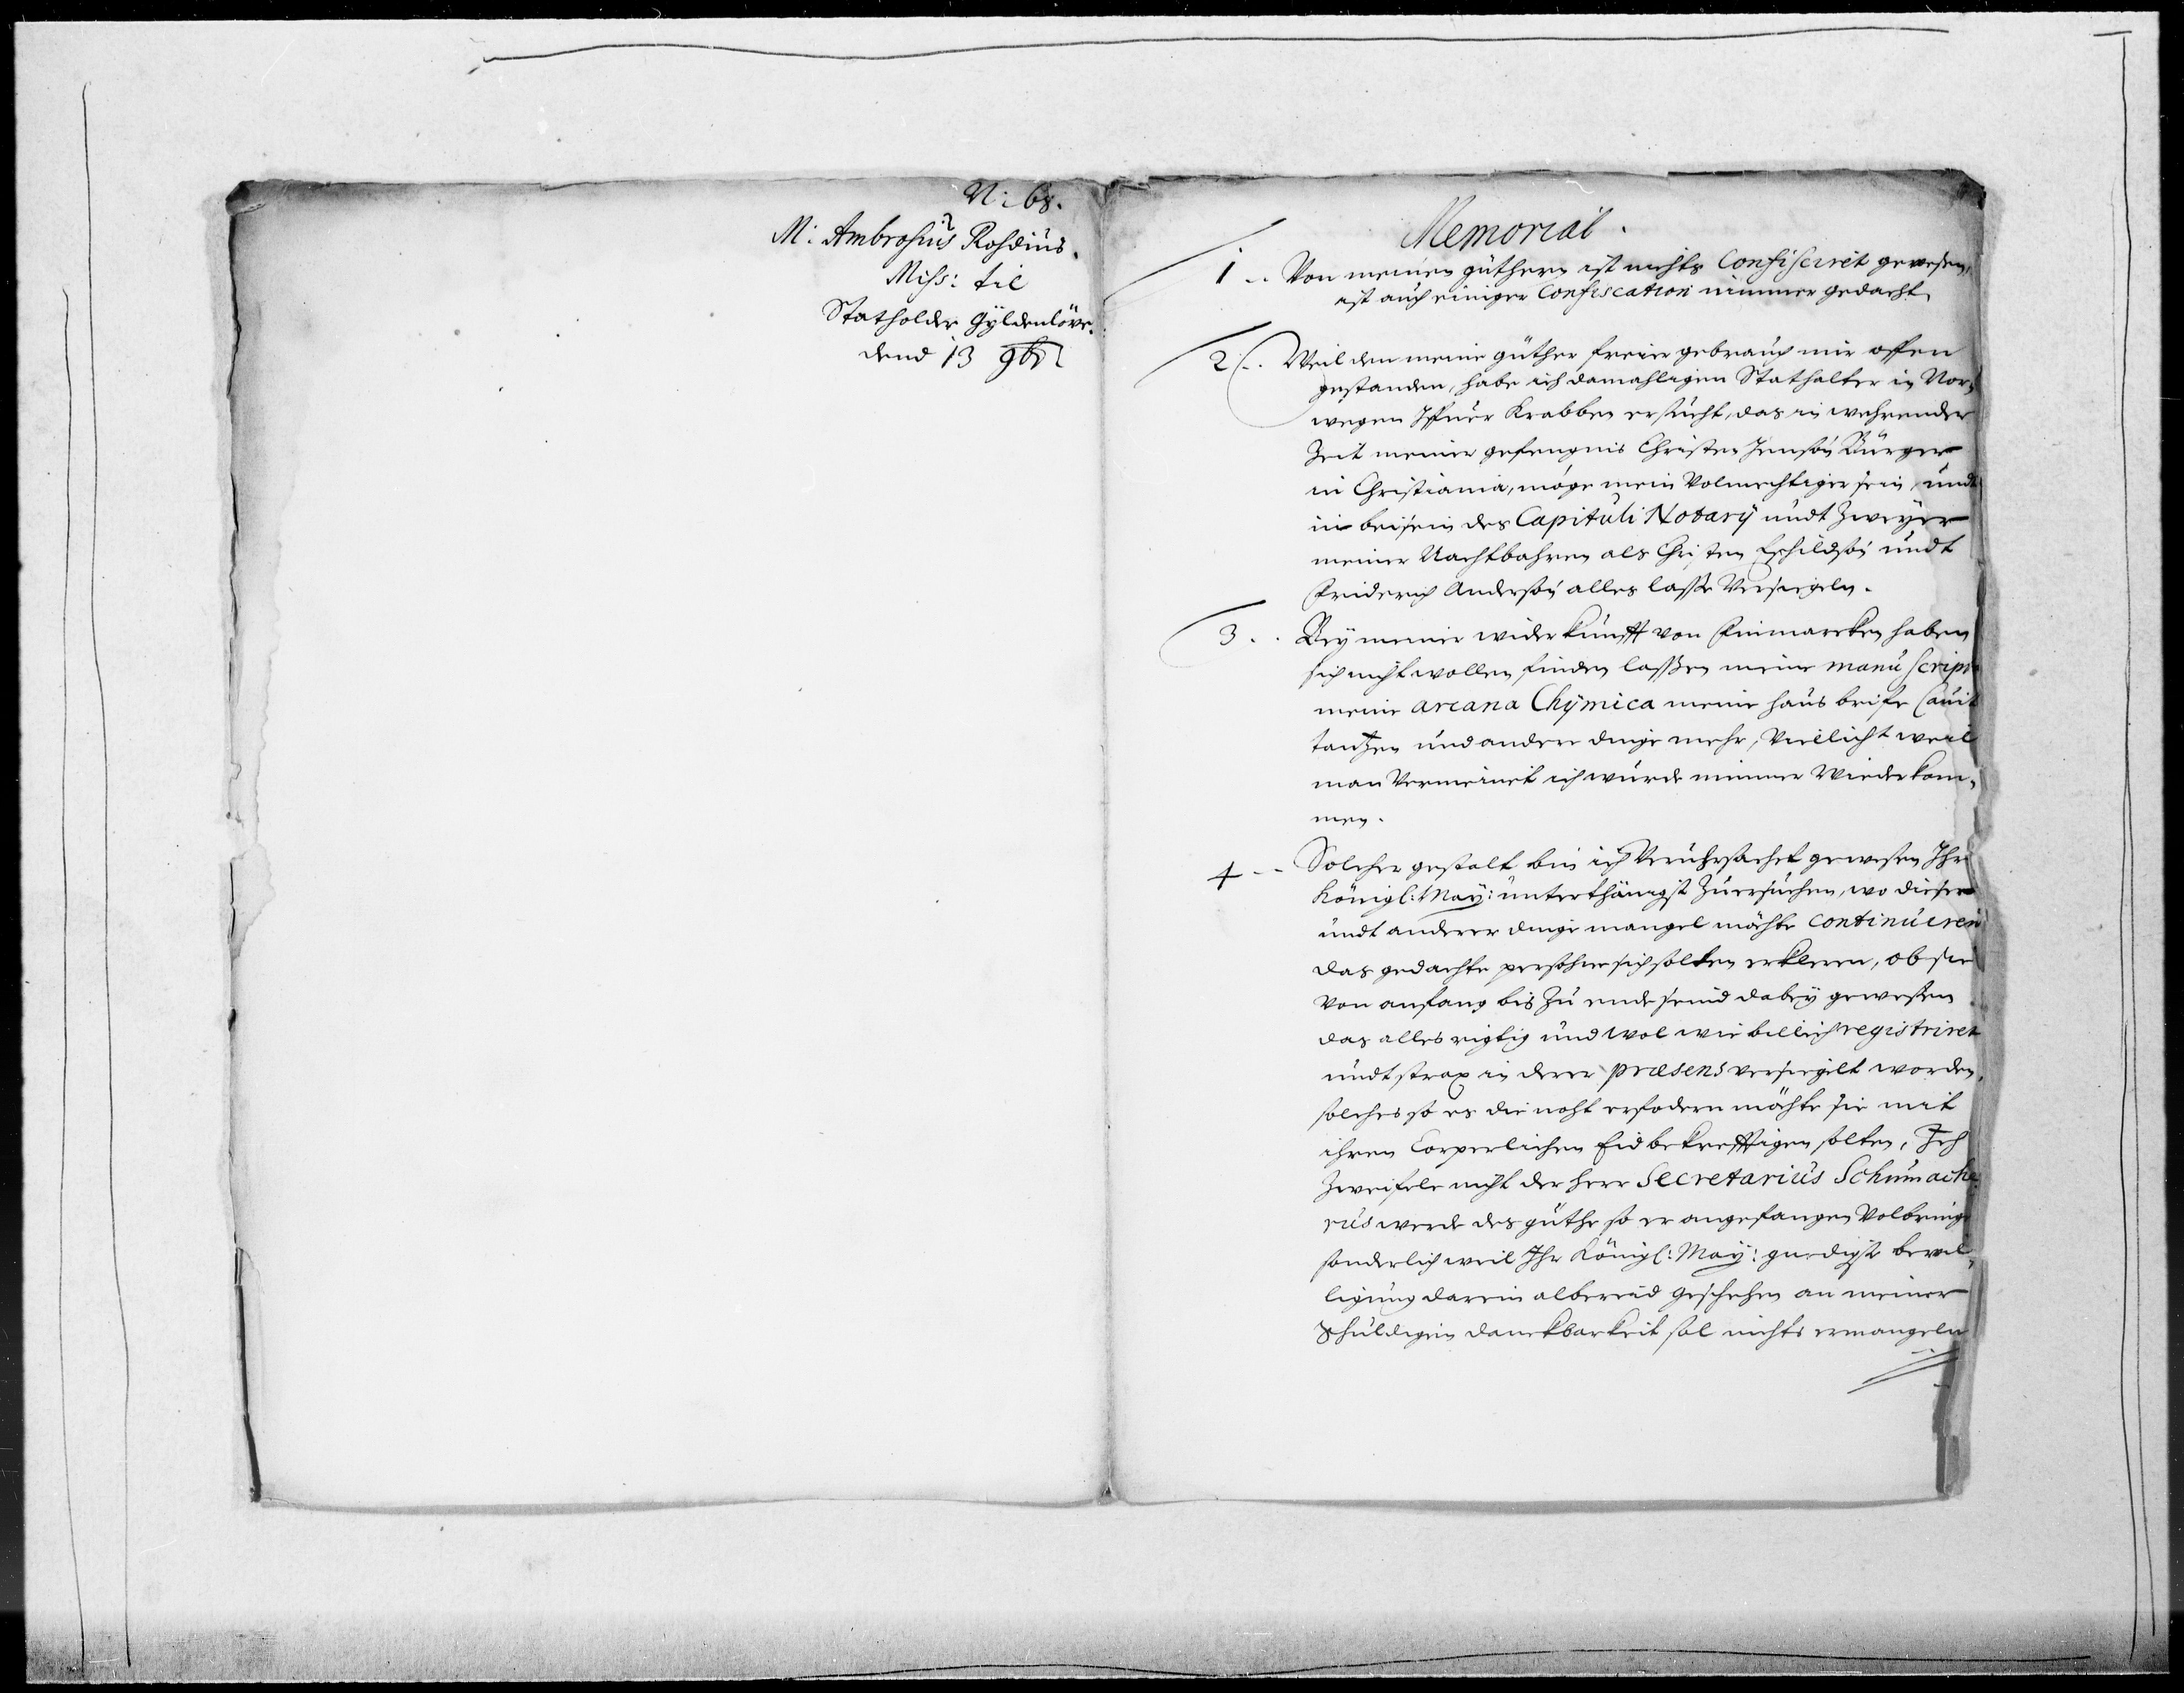 N: 68.
M: Ambrosius Rohdius.
Miss: til
Statholder Gyldenlöve.
dend 13 9br
Memorial.
1 .. Von meinen güthern ist nichts Confisciret gewesen,
ist auch einiger Confiscation nimmer gedacht
2 .. Weil den meine güther freier gebrauch mir offen
gestanden, habe ich damahligen Stathalter in Nor-
wegen Iffuer Krabben ersucht, das in wehrender
Zeit meiner gefengnis Christen Jensön Bürger
in Christiania, möge mein Volmechtiger sein, undt
in beisein des Capituli Notarij undt Zweyer
meiner Nachtbahren als Christen Eschildsön undt
Friderich Andersön alles lasse Versiegeln.
3 .. Bey meiner widerkunfft von Finmarcken haben
sich nicht wollen finden lassen meine manu script
meine arcana Chymica meine haus briefe quit
tantzen und andere dinge mehr, Vielicht weil
man Vermeinet ich würde nimmer Wiederkom-
men.
4 -- Solcher gestalt bin ich Veruhrsachet gewesen Ihr
Königl: May: unterthänigst Zuersuchen, wo dieser
undt anderer dinge mangel möchte continueren
das gedachte persohne sich solten erkleren, ob sie
Von anfang bis Zu ende seind dabey gewesen
das alles richtig und wol wie billich registriret
undt strax in derer præsens versiegelt worden,
solches so es die noht erfodern möchte sie mit
ihren Corperlichen Eid bekrefftigen solten, Ich
Zweifele nicht der herr Secretarius Schumache
rus werde das guthe so er angefangen Volbringe
sonderlich weil Ihr Königl: May: gnedigste bewil-
ligung darein albereid geschehen an meiner
Schuldigen danckbarkeit sol nichts ermangeln